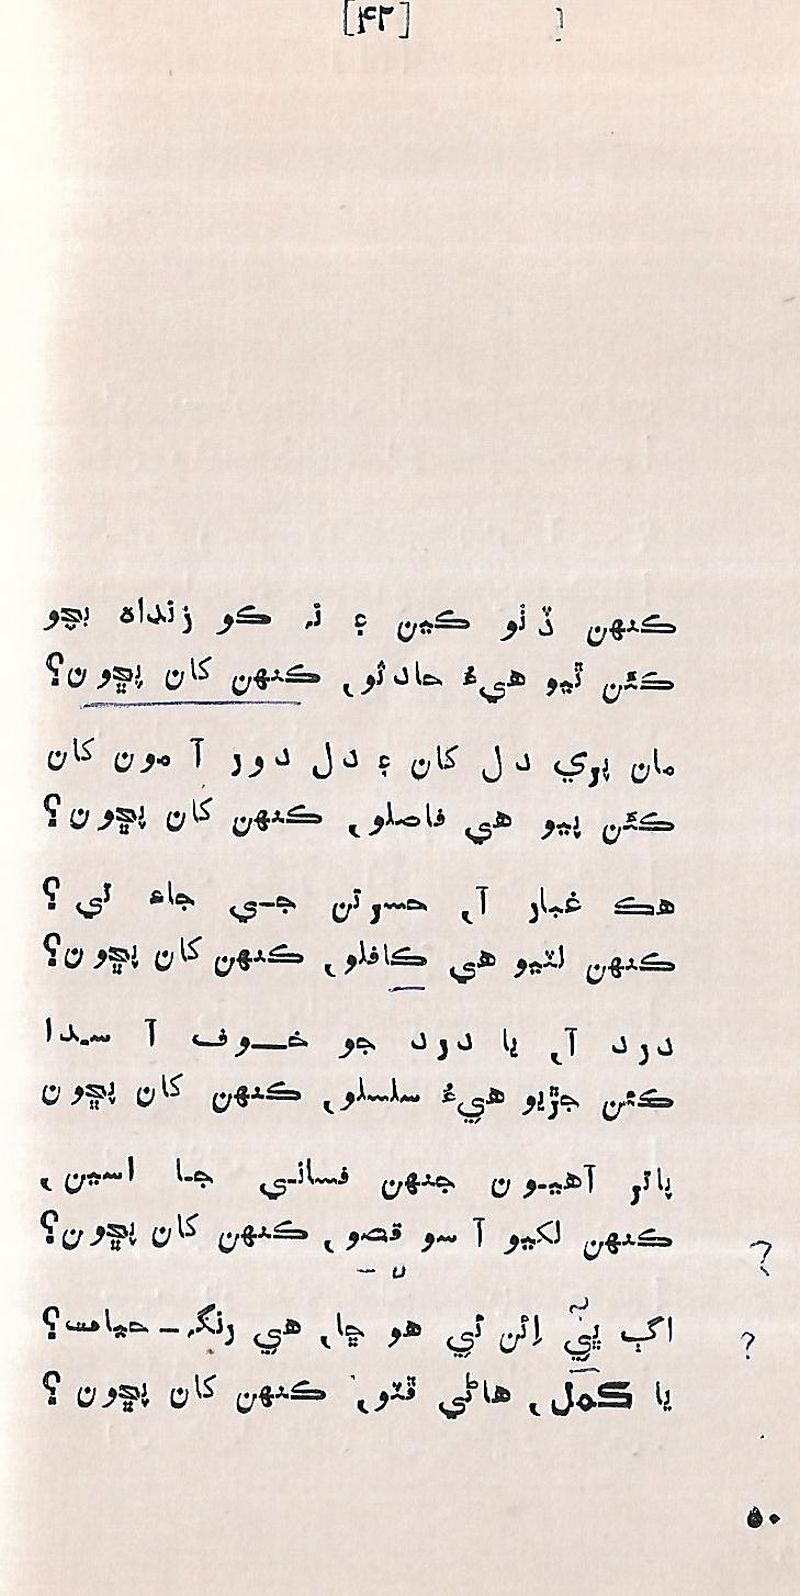 [۴۲]
ڪنهن ڏٺو ڪين ۽ نہ ڪو زنداہ بچو
ڪٿن ٿيو هيءُ حادثو، ڪنهن کان پڇون؟
مان پري دل کان ۽ دل دور آ مون کان
ڪٿن پيو هي فاصلو، ڪنهن کان پڇون؟
هڪ غبار آ، حسرتن جي جاءِ تي ؟
ڪنهن لٽيو هي ڪافلو، ڪنهن کان پڇون؟
درد آ، يا درد جو خوف آ سدا
ڪئن جڙيو هيءُ سلسلو، ڪنهن کان پڇون
پاتر آهيون جنهن فساني جا اسين،
ڪنهن لکيو آ سو قصو، ڪنهن کان پڇون؟
اڳ ڀي اِئن ئي هو ڇا، هي رنگہ – حيات؟
يا ڪمل، هاڻي ڦٽو، ڪنهن کان پڇون ؟
۵۰